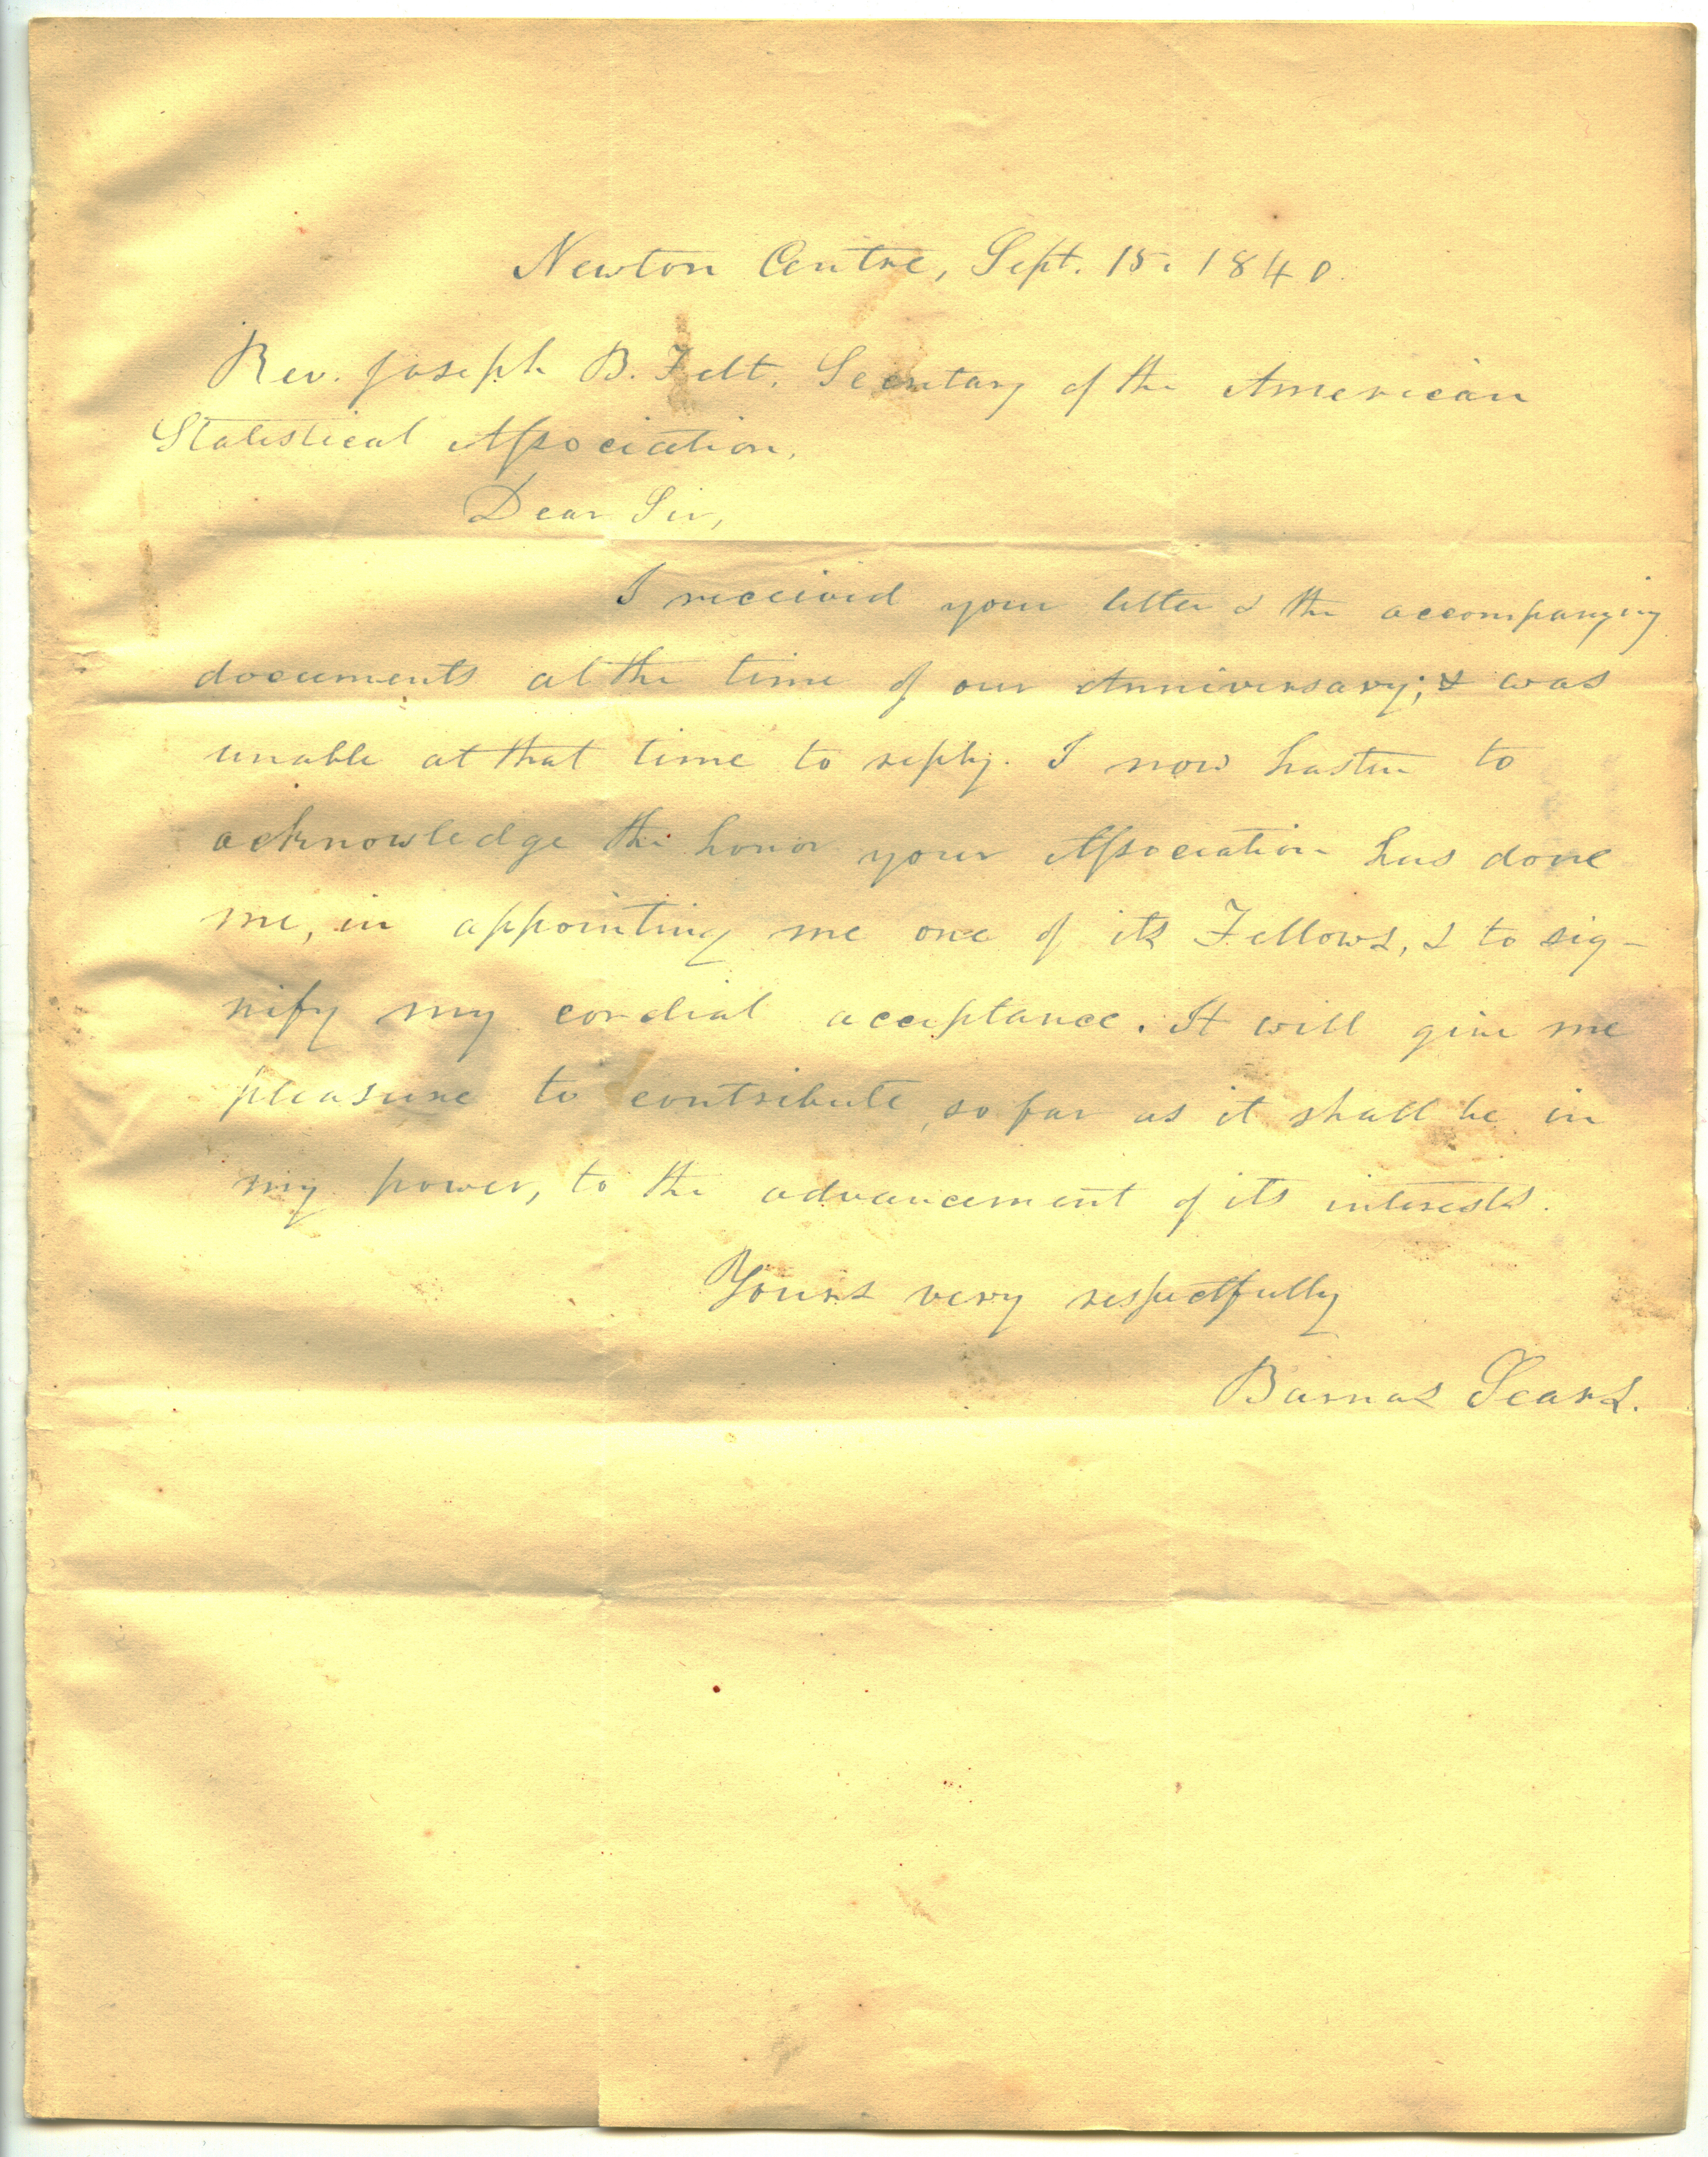 Newton Centre, Sept. 15. 1840.
Rev. Joseph B. Felt. Secretary of the American
Statistical Association.
Dear Sir,
I received your letter & the accompanying
documents at the time of our Anniversary; & was
unable at that time to reply. I now hasten to
acknowledge the honor your Association has done
me, in appointing me one of its Fellows, & to sig-
nify my cordial acceptance. It will give me
pleasure to contribute, so far as it shall be in
my power, to the advancement of its interests.
Yours very respectfully
Barnas Sears.